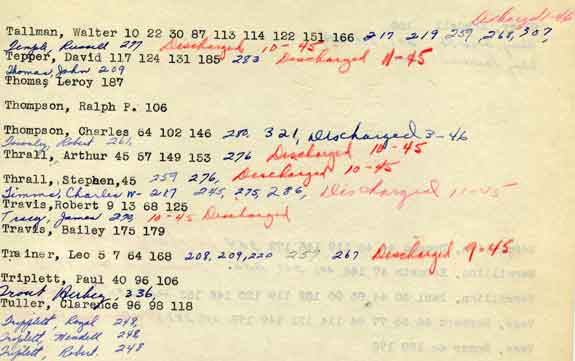 Discharged 1-46
Tallman, Walter 10 22 30 87 113 114 122 151 166 217 219 259, 268, 307,
Temple, Russell 277 Discharged 10-45
Tepper, David 117 124 131 185 283 Discharged 11-45
Thomas, John 209
Thomas Leroy 187
Thompson, Ralph P. 106
Thompson, Charles 64 102 146 280, 321, Discharged 3-46
Robert 261,
Thrall, Arthur 45 57 149 153 276 Discharged 10-45
Thrall, Stephen,45 259 276, Discharged 10-45
Timms, Charles W- 217 245, 275, 286, Discharged 11-45
Travis,Robert 9 13 68 125
Tracy, James 270, 10-45 Discharged
Travis, Bailey 175 179
Trainer, Leo 5 7 64 168 208, 209, 220 259 267 Discharged 9-45
Triplett, Paul 40 96 106
Trout 336,
Tuller, Clarence 96 98 118
Tripplett, Royal 248,
Triplett, Wendell 248
Triplett, Robert. 248